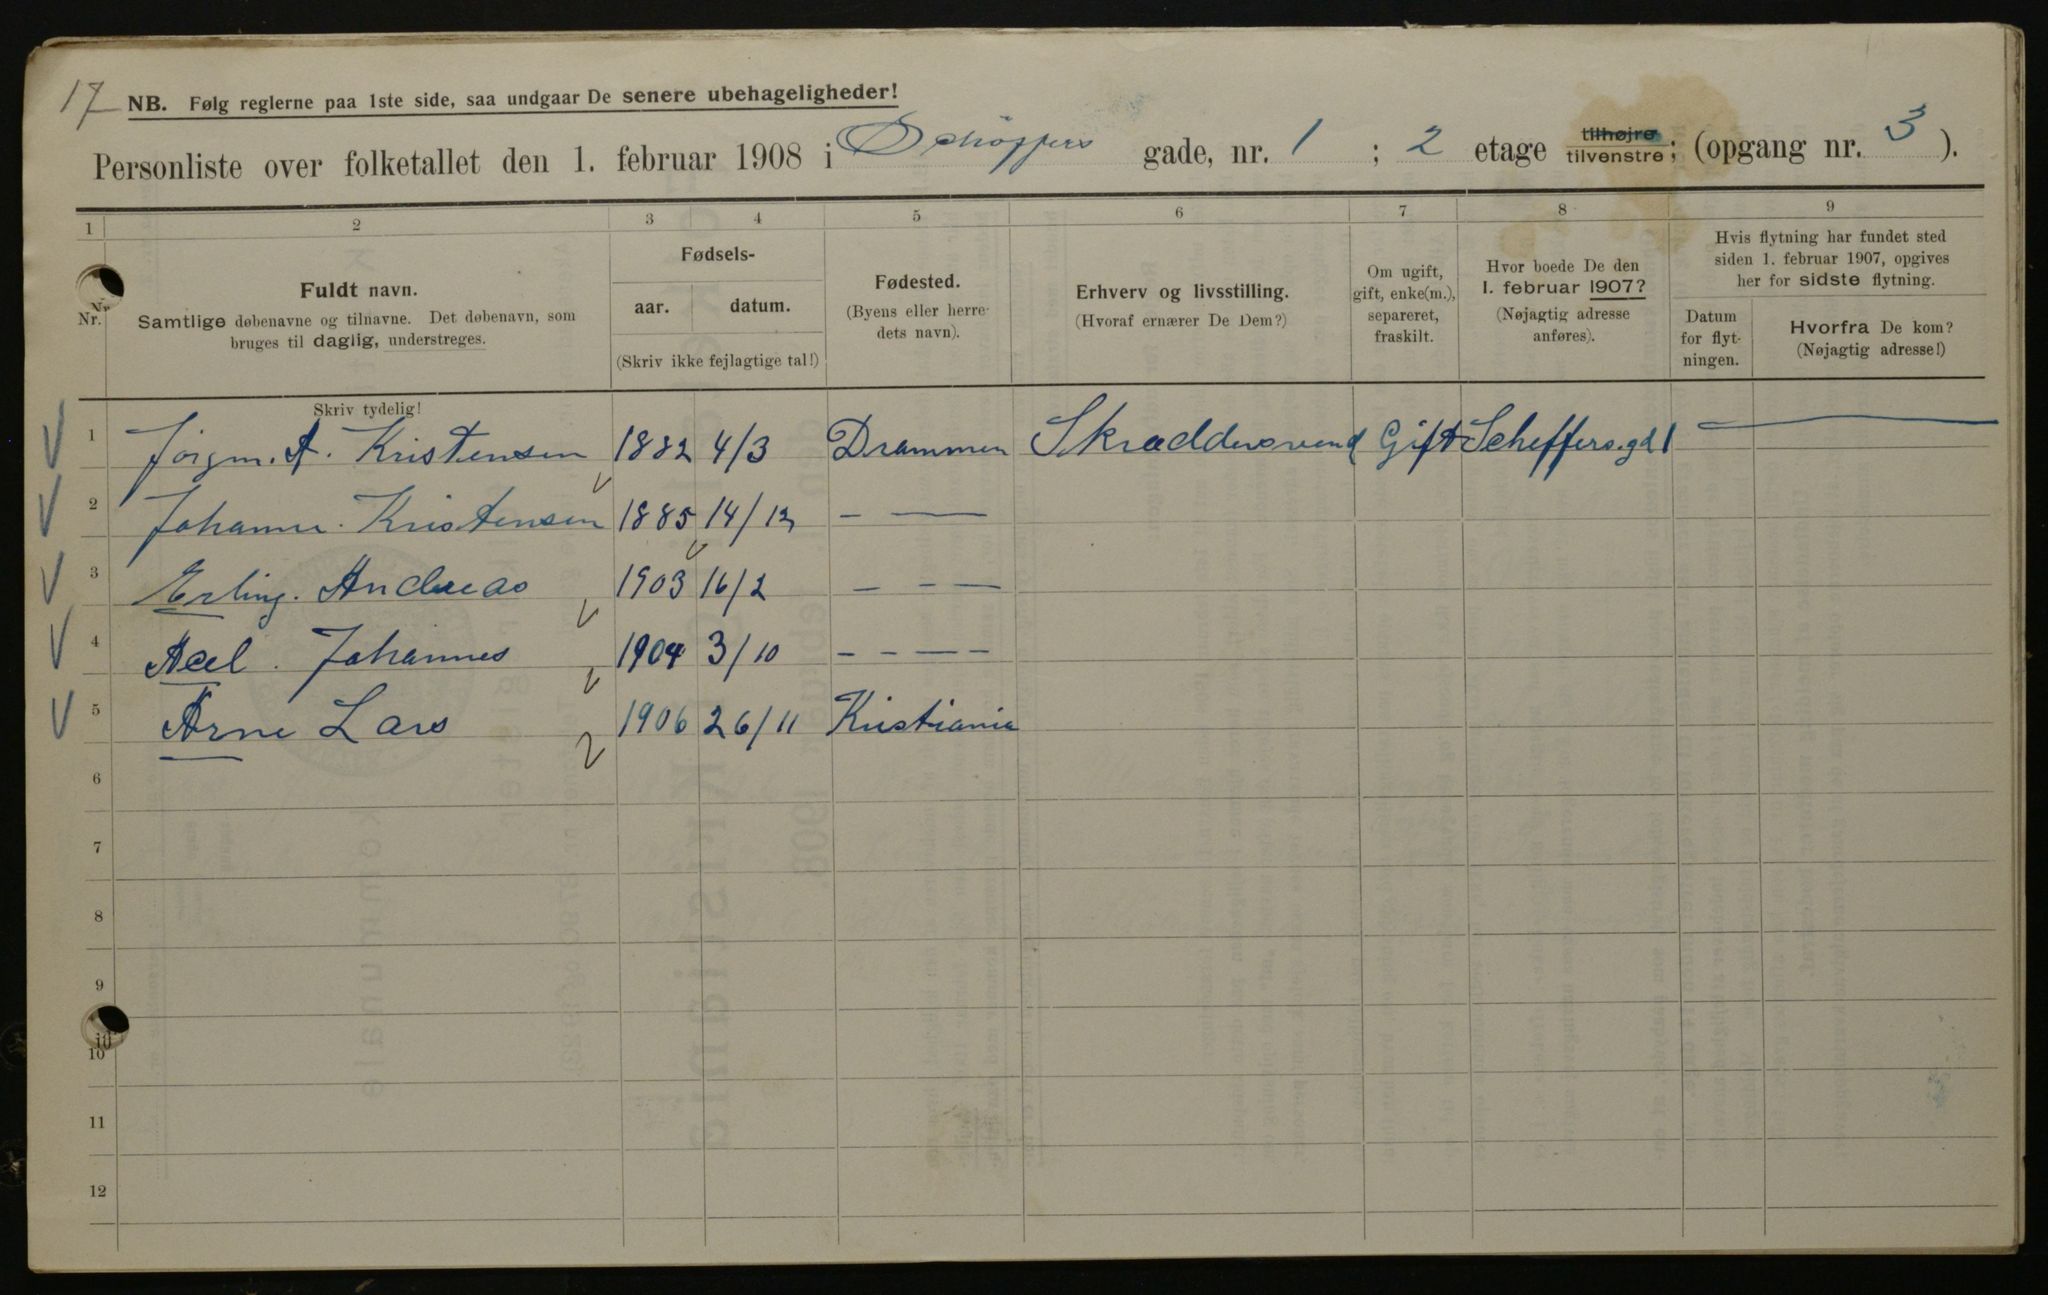 17 NB. Følg reglerne paa 1ste side, saa undgaar De senere ubehageligheder!
Personliste over folketallet den 1. februar 1908 i Schöffers gade, nr. 1 ; 2 etage tilhøjre tilvenstre; (opgang nr. 3 ).
1 2 3 4 5 6 7 8 9
Nr.
Fuldt navn.
Samtlige døbenavne og tilnavne. Det døbenavn, som
bruges til daglig, understreges.
Fødsels-
aar. datum.
(Skriv ikke fejlagtige tal!)
Fødested.
(Byens eller herre-
dets navn).
Erhverv og livsstilling.
(Hvoraf ernærer De Dem?)
Om ugift,
gift, enke(m.),
separeret,
fraskilt.
Hvor boede De den
1. februar 1907?
(Nøjagtig adresse
anføres).
Hvis flytning har fundet sted
siden 1. februar 1907, opgives
her for sidste flytning.
Datum
for flyt-
ningen.
Hvorfra De kom?
(Nøjagtig adresse!)
Skriv tydelig!
1 Jørgen. A. Kristensen 1882 4/3 Drammen Skræddersvend Gift Scheffers.gd 1 —
2 Johanne. Kristensen 1885 14/12 – —
3 Erling. Andreas 1903 16/2 – – —
4 Axel. Johannes 1904 3/10 – – — –
5 Arne Lars 1906 26/11 Kristiania
6
7
8
9
10
11
12